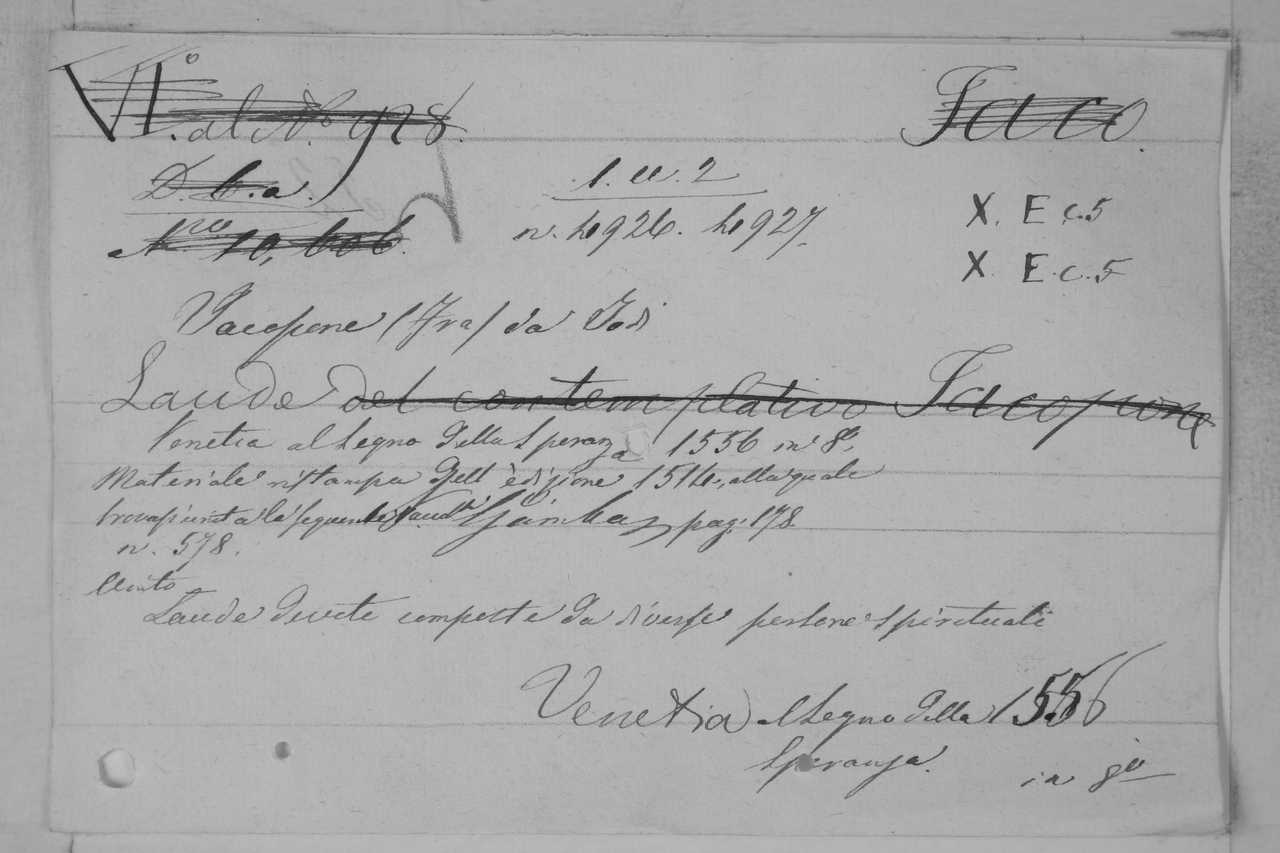 VI.º al Nº 928.
Jaco.
D. b. a.
1. u. 2
X. E c.5
Nro 10,606.
n. 4926. 4927.
X. E. c. 5
Jacopone (Fra) da Todi
Laude del contemplativo Jacopone
Venetia al segno della Speranza 1556 in 8º.
Materiale ristampa dell' edizione 1514, alla quale
trovasi unita le seguenti Laudi Gamba pag: 178
n. 578.
Laude devote composte da diverse persone spirituali
Venetia al segno della 1556
Speranza.
in 8º